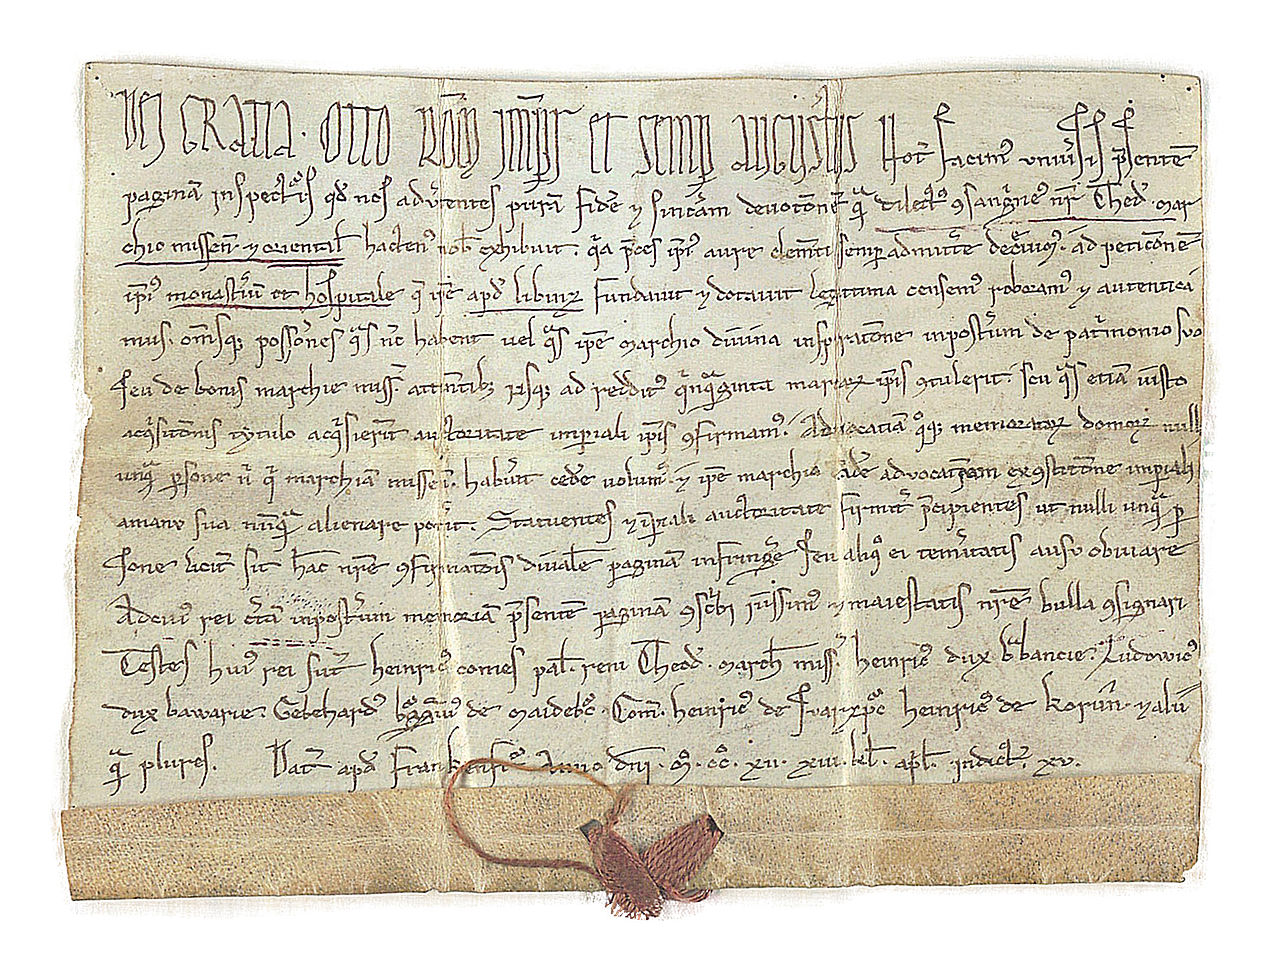 DEI GRATIA. OTTO ROM̄ IMP̄R̄ ET SEMP̄ AUGUSTUS Not̄ facim̄ univ̄sis p̄sentē
paginā inspectur̄is qd̄ nos adv̄tentes purā fidē ⁊ sincāam devot̄onē q̄a dilect̄ ꝯsanguine᷒ nr̄ Theod̄. mar
chio missen̄. ⁊ oriental̄ hacten᷒ nob̄ exhibuit. q̄a p̄ces ip̄i᷒ aure clem̄ti semp̄ admitt̄e dec̄vim᷒. ad petic̄onē
ip̄i᷒ monast̄iū et hospitale q̄ ip̄e apd̄ libuiz fundavit ⁊ dotavit legittima censem᷒ roboram᷒ ⁊ autentica
mus. om̄sq; poss̄ones q̄s nc̄ habent vel q̄s ip̄e marchio divina inspirat̄one inpost̄um de pat̄monio suo
seu de bonis marchie miss̄. attin̄tib; usq; ad reddit᷒ q̄nq̄aginta marcaꝝ ip̄is ꝯtulerit. seu q̄s etiā iusto
acq̄sit̄onis tytulo acq̄sier̄t auctoritate imp̄iali ip̄is ꝯfirmam᷒. Advocatiā q̄q; memorataꝝ domoꝝ nulli
unq̄ p̄sone n̄ q̄ marchiā missen̄. habūit ced̄e volum᷒. ⁊ ip̄e marchio ade advocatiam ex ꝯstitut̄one imp̄iali
amanu sua nunq̄ alienare pot̄it. Statuentes ⁊ ip̄iali auctoritate firmit̄ p̄cipientes ut nulli unq̄ p̄
sone licit̄ sit hāc nr̄e ꝯfirmat̄onis divialē paginā infrinḡe seu aliq᷒ ei tem̄itatis ausu obviare
Adcui᷒ rei c̄tā inpost̄um memoriā p̄sentē paginā ꝯsc̄bi iussim᷒ ⁊ maiestatis nr̄e bulla ꝯsignari
Testes hui᷒ rei sūt heinric᷒ comes pal̄. reni Theod̄. march̄ miss̄. heinric᷒ dux b̄bancie. Ludowic᷒
dux bawarie. Gebehard᷒ b̄ggvi᷒ de maideb̄c. Com̄. heinric᷒ de svarzp̄c heinric᷒ de korūn. ⁊ alii
q̄ plures. Dat̄ apd̄ Frankenf̄t̄ Anno dn̄i. M̄. cc̄. xii. xiii. kl̄. apl̄. indict̄. xv.